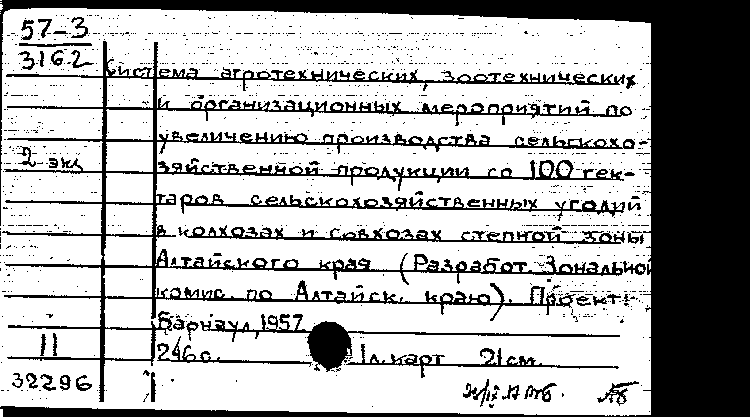 57-3
3162
Система агротехнических, зоотехнических
и организационных мероприятий по
увеличению производства сельскохо-
2 экз
зяйственной продукции со 100 гек-
таров сельскохозяйственных угодий
в колхозах и совхозах степной зоны
Алтайского края (Разработ. Зональной
комис. по Алтайск. краю). Проект.
Барнаул, 1957
11
246с. 1л. карт 21см.
32296